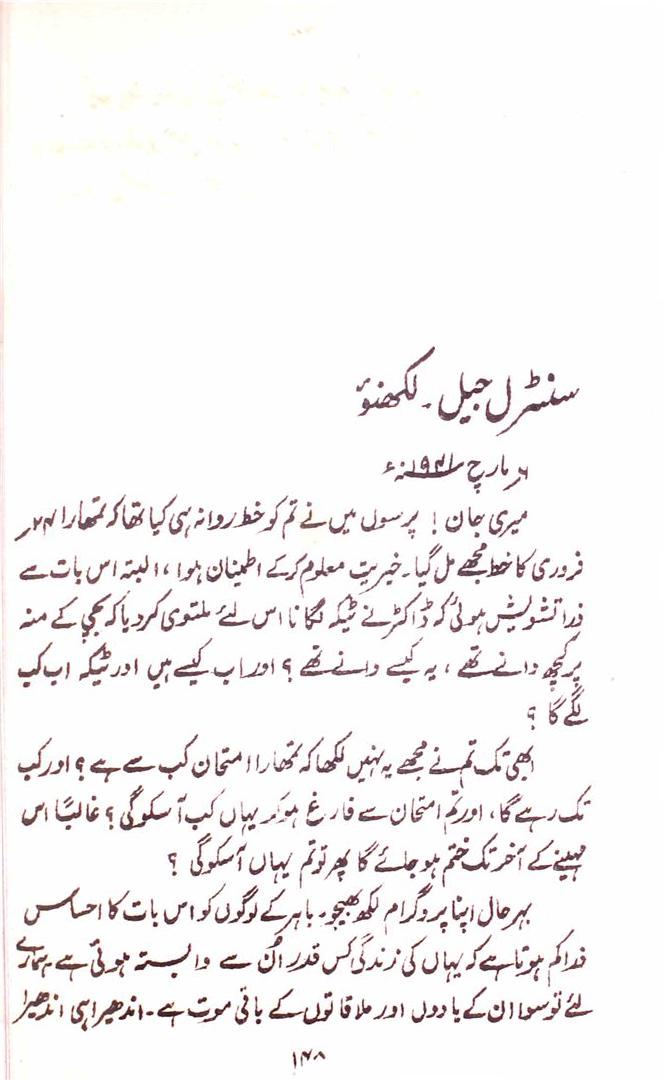 سنٹرل جیل ۔ لکھنؤ
۶؍ مارچ ۱۹۴۱ء
میری جان ! پرسوں میں نے تم کو خط روانہ ہی کیا تھا کہ تمھارا ۲۴؍
فروری کا خط مجھے مل گیا۔ خیریت معلوم کرکے اطمینان ہوا ، البتہ اس بات سے
ذرا تشویش ہوئی کہ ڈاکٹر نے ٹیکہ لگانا اس لئے ملتوی کردیا کہ بچی کے منہ
پر کچھ دانے تھے ، یہ کیسے دانے تھے ؟ اور اب کیسے ہیں اور ٹیکہ اب کب
لگے گا ؟
ابھی تک تم نے مجھے یہ نہیں لکھا کہ تمھارا امتحان کب سے ہے ؟ اور کب
تک رہے گا ، اور تم امتحان سے فارغ ہوکر یہاں کب آسکوگی ؟ غالباً اس
مہینے کے آخر تک ختم ہو جائے گا پھر تو تم یہاں آسکوگی ؟
بہرحال اپنا پروگرام لکھ بھیجو۔ باہر کے لوگوں کو اس بات کا احساس
ذرا کم ہوتا ہے کہ یہاں کی زندگی کس قدر اُن سے وابستہ ہوتی ہے ہمارے
لئے تو سوا ان کے یادوں اور ملاقاتوں کے باقی موت ہے۔ اندھیرا ہی اندھیرا
۱۴۸